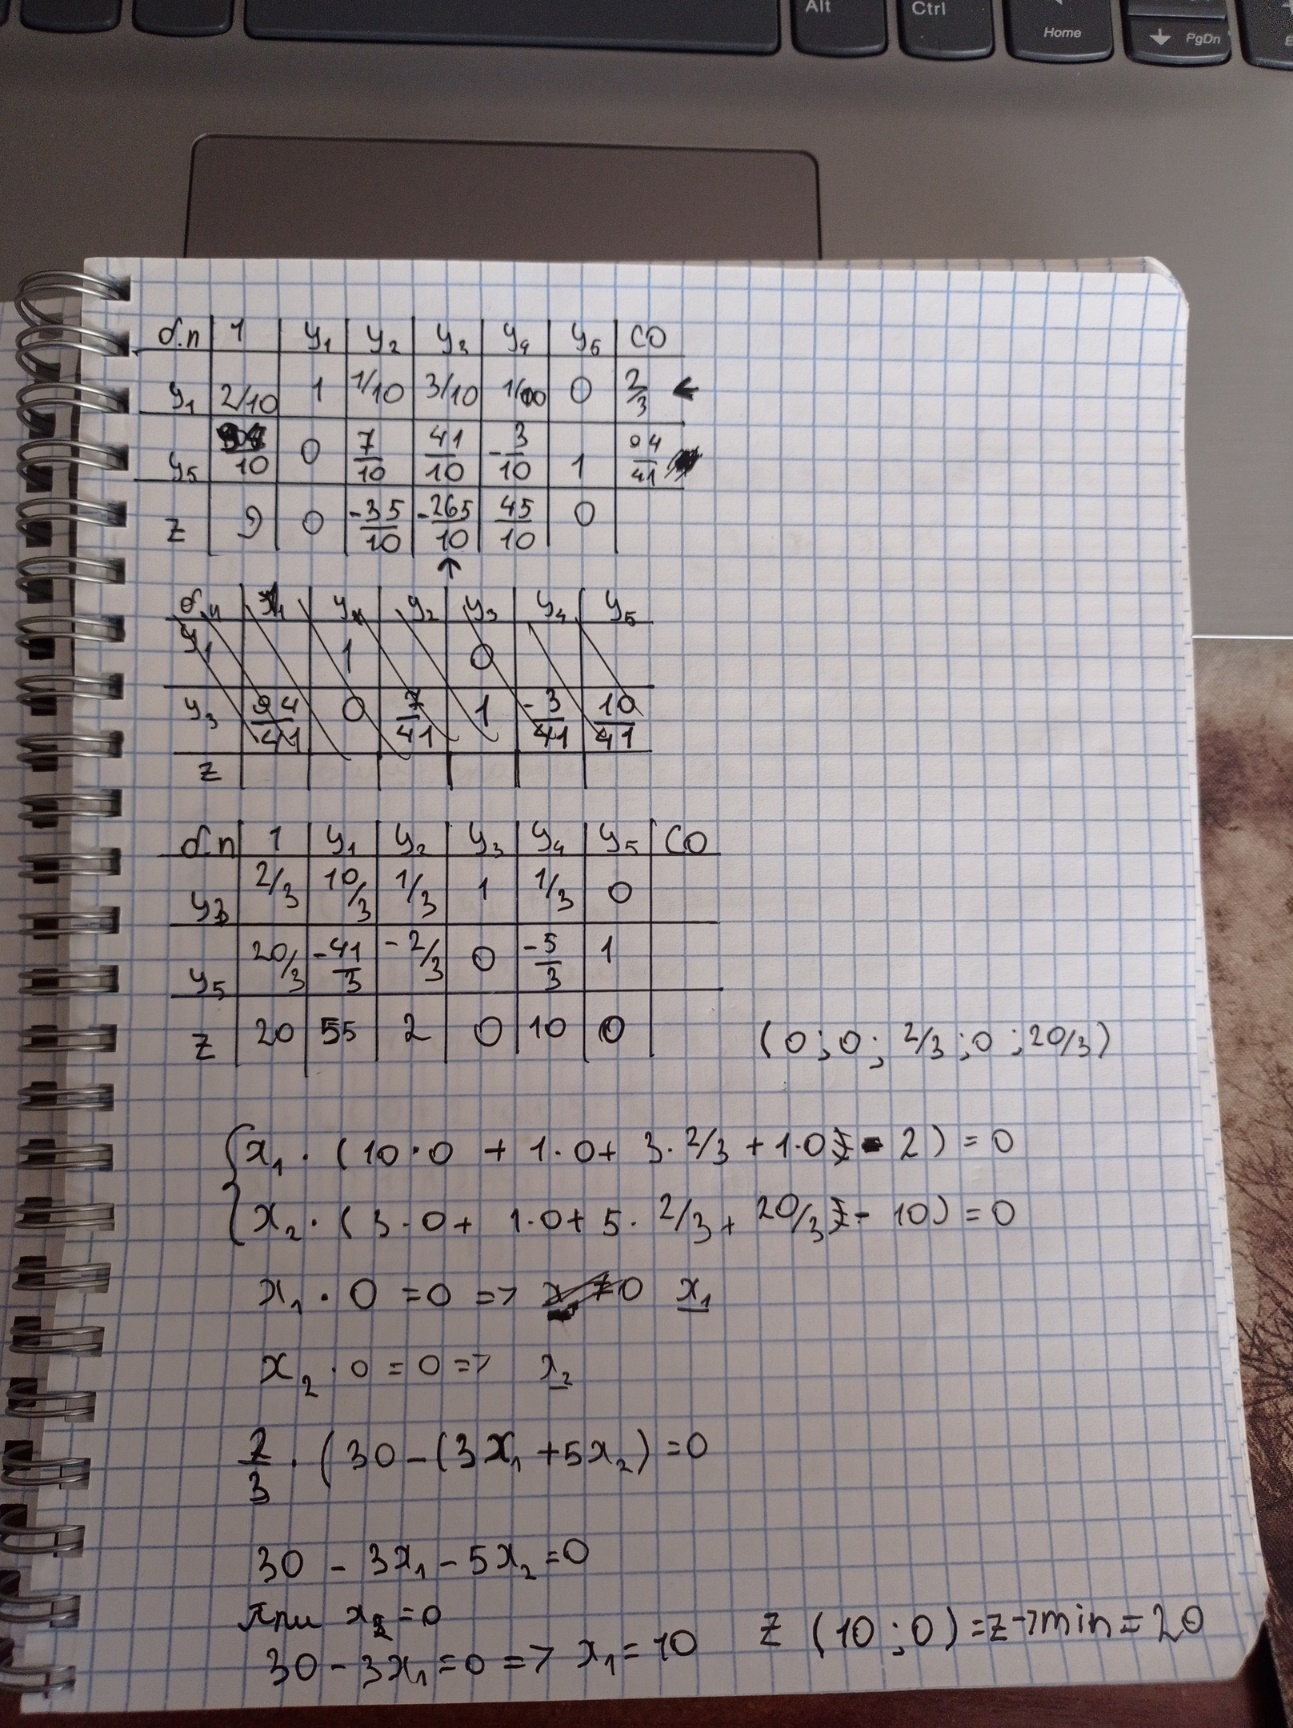 Alt Ctrl Home PgDn
б.п 1 y₁ y₂ y₃ y₄ y₅ CO
y₁ 2/10 1 1/10 3/10 1/10 0 2/3 ←
y₅ /10 0 7/10 41/10 -3/10 1 94/41
z 9 0 -35/10 -265/10 45/10 0
↑
б.п y₁ y₂ y₃ y₄ y₅
y₁ 1 0
y₃ 94/41 0 7/41 1 -3/41 10/41
z
б.п 1 y₁ y₂ y₃ y₄ y₅ CO
y₃ 2/3 10/3 1/3 1 1/3 0
y₅ 20/3 -41/3 -2/3 0 -5/3 1
z 20 55 2 0 10 0
(0;0; 2/3;0;20/3)
x₁·(10·0 + 1·0+ 3·2/3+1·0 - 2)=0
x₂·(3·0+ 1·0+5· 2/3+ 20/3 - 10)=0
x₁·0=0=> x₁
x₂·0=0=> x₂
2/3·(30-(3x₁+5x₂)=0
30 - 3x₁ - 5x₂=0
при x₂=0
30-3x₁=0=> x₁=10
z (10;0)=z→min=20